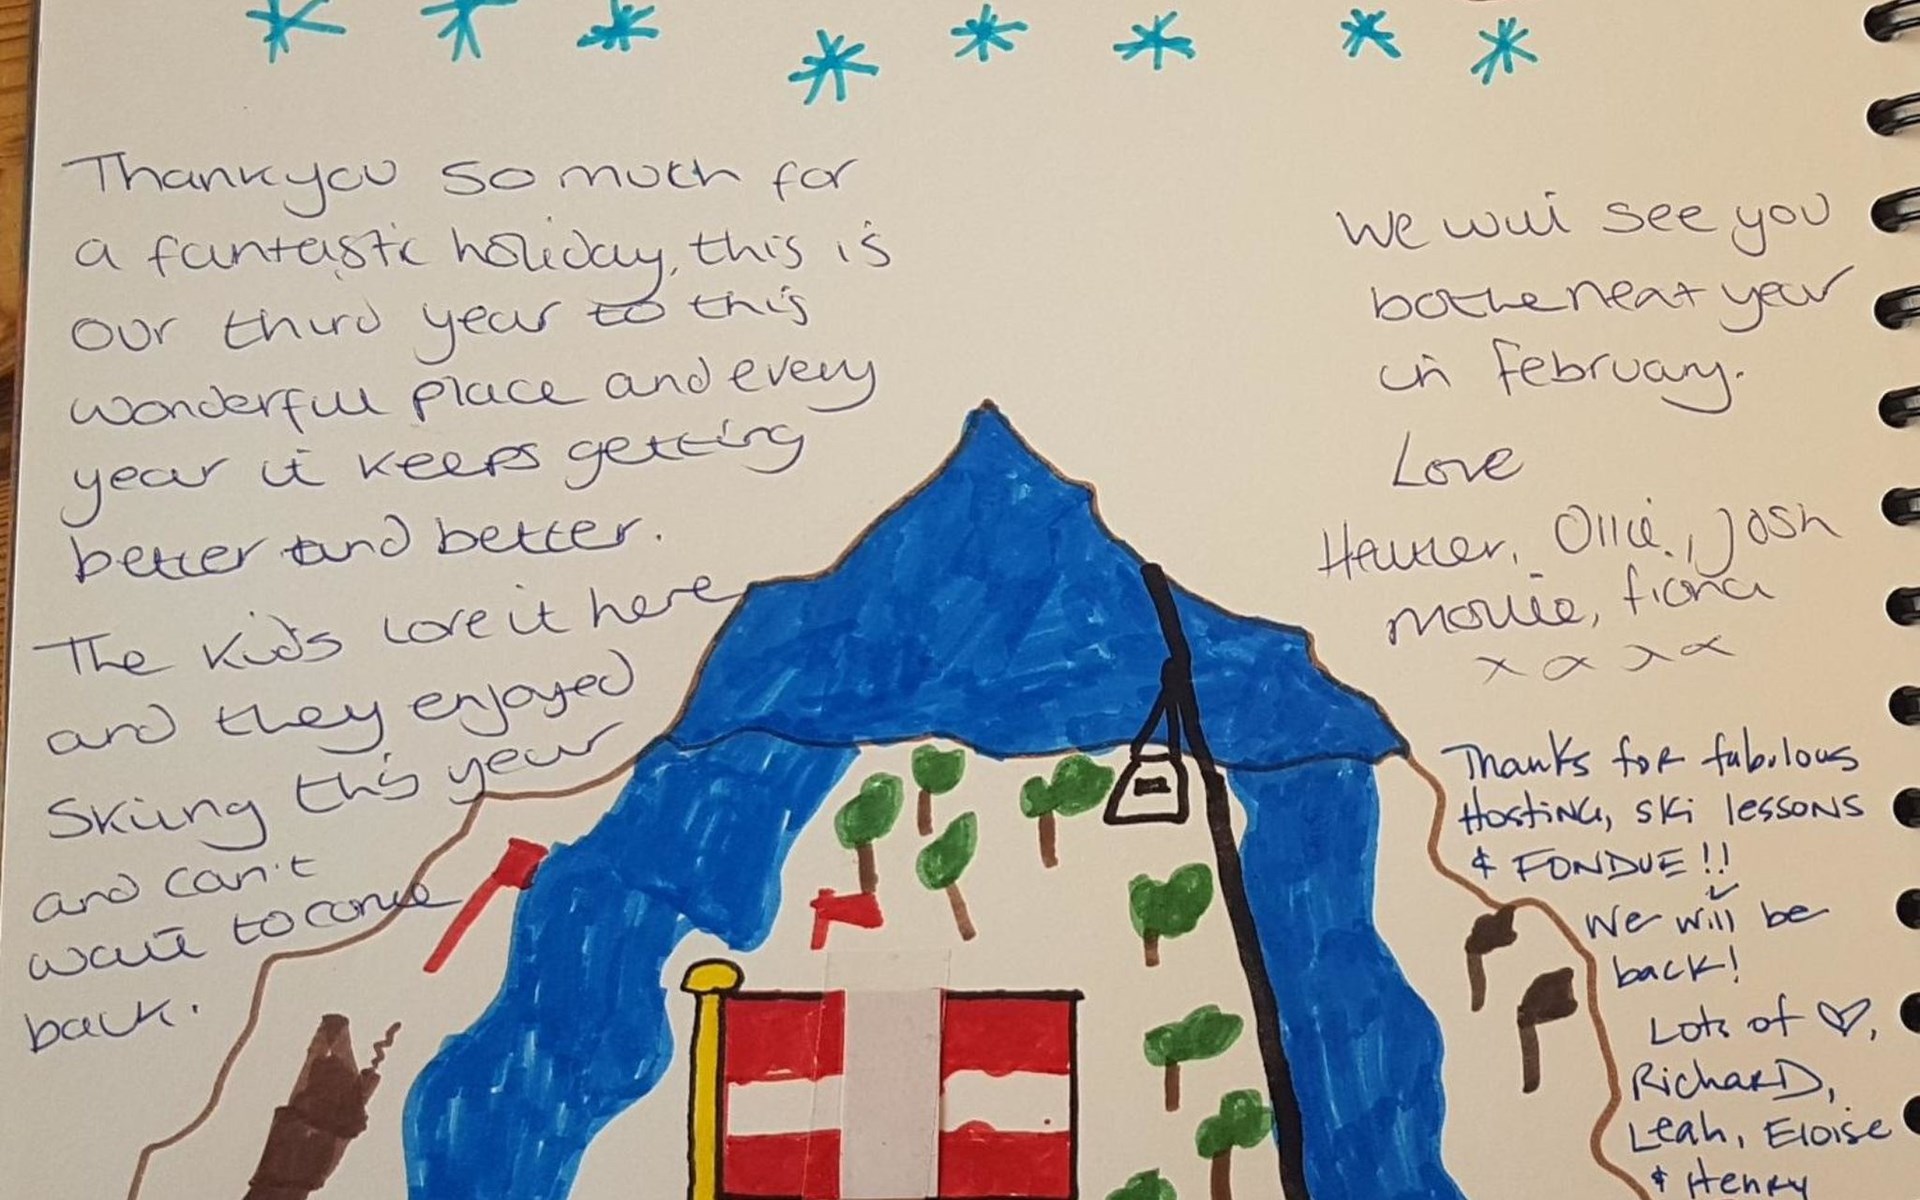 Thankyou so much for
a fantastic holiday, this is
our third year to this
wonderful place and every
year it keeps getting
better and better.
The kids love it here
and they enjoyed
skiing this year
and can't
wait to come
back.
We will see you
bothe next year
in February.
Love
Ollie, Josh
Mollie, Fiona
x x x x
Thanks for fabulous
Hosting, ski lessons
& FONDUE!!
We will be
back!
Lots of ♡,
Richard,
Leah, Eloise
& Henry